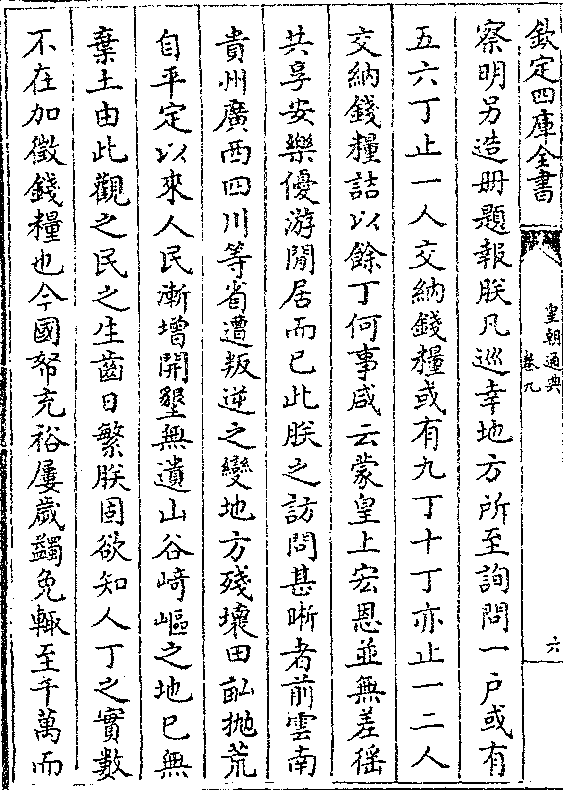 欽定四庫全書
皇朝通典
卷九
六
察明另造册題報朕凡巡幸地方所至詢問一戶或有
五六丁止一人交納錢糧或有九丁十丁亦止一二人
交納錢糧詰以餘丁何事咸云蒙皇上宏恩並無差徭
共享安樂優游閒居而已此朕之訪問甚晰者前雲南
貴州廣西四川等省遭叛逆之變地方殘壞田畝抛荒
自平定以來人民漸增開墾無遺山谷崎嶇之地已無
棄土由此觀之民之生齒日繁朕固欲知人丁之實數
不在加徵錢糧也今國帑充裕屢歲蠲免輒至千萬而